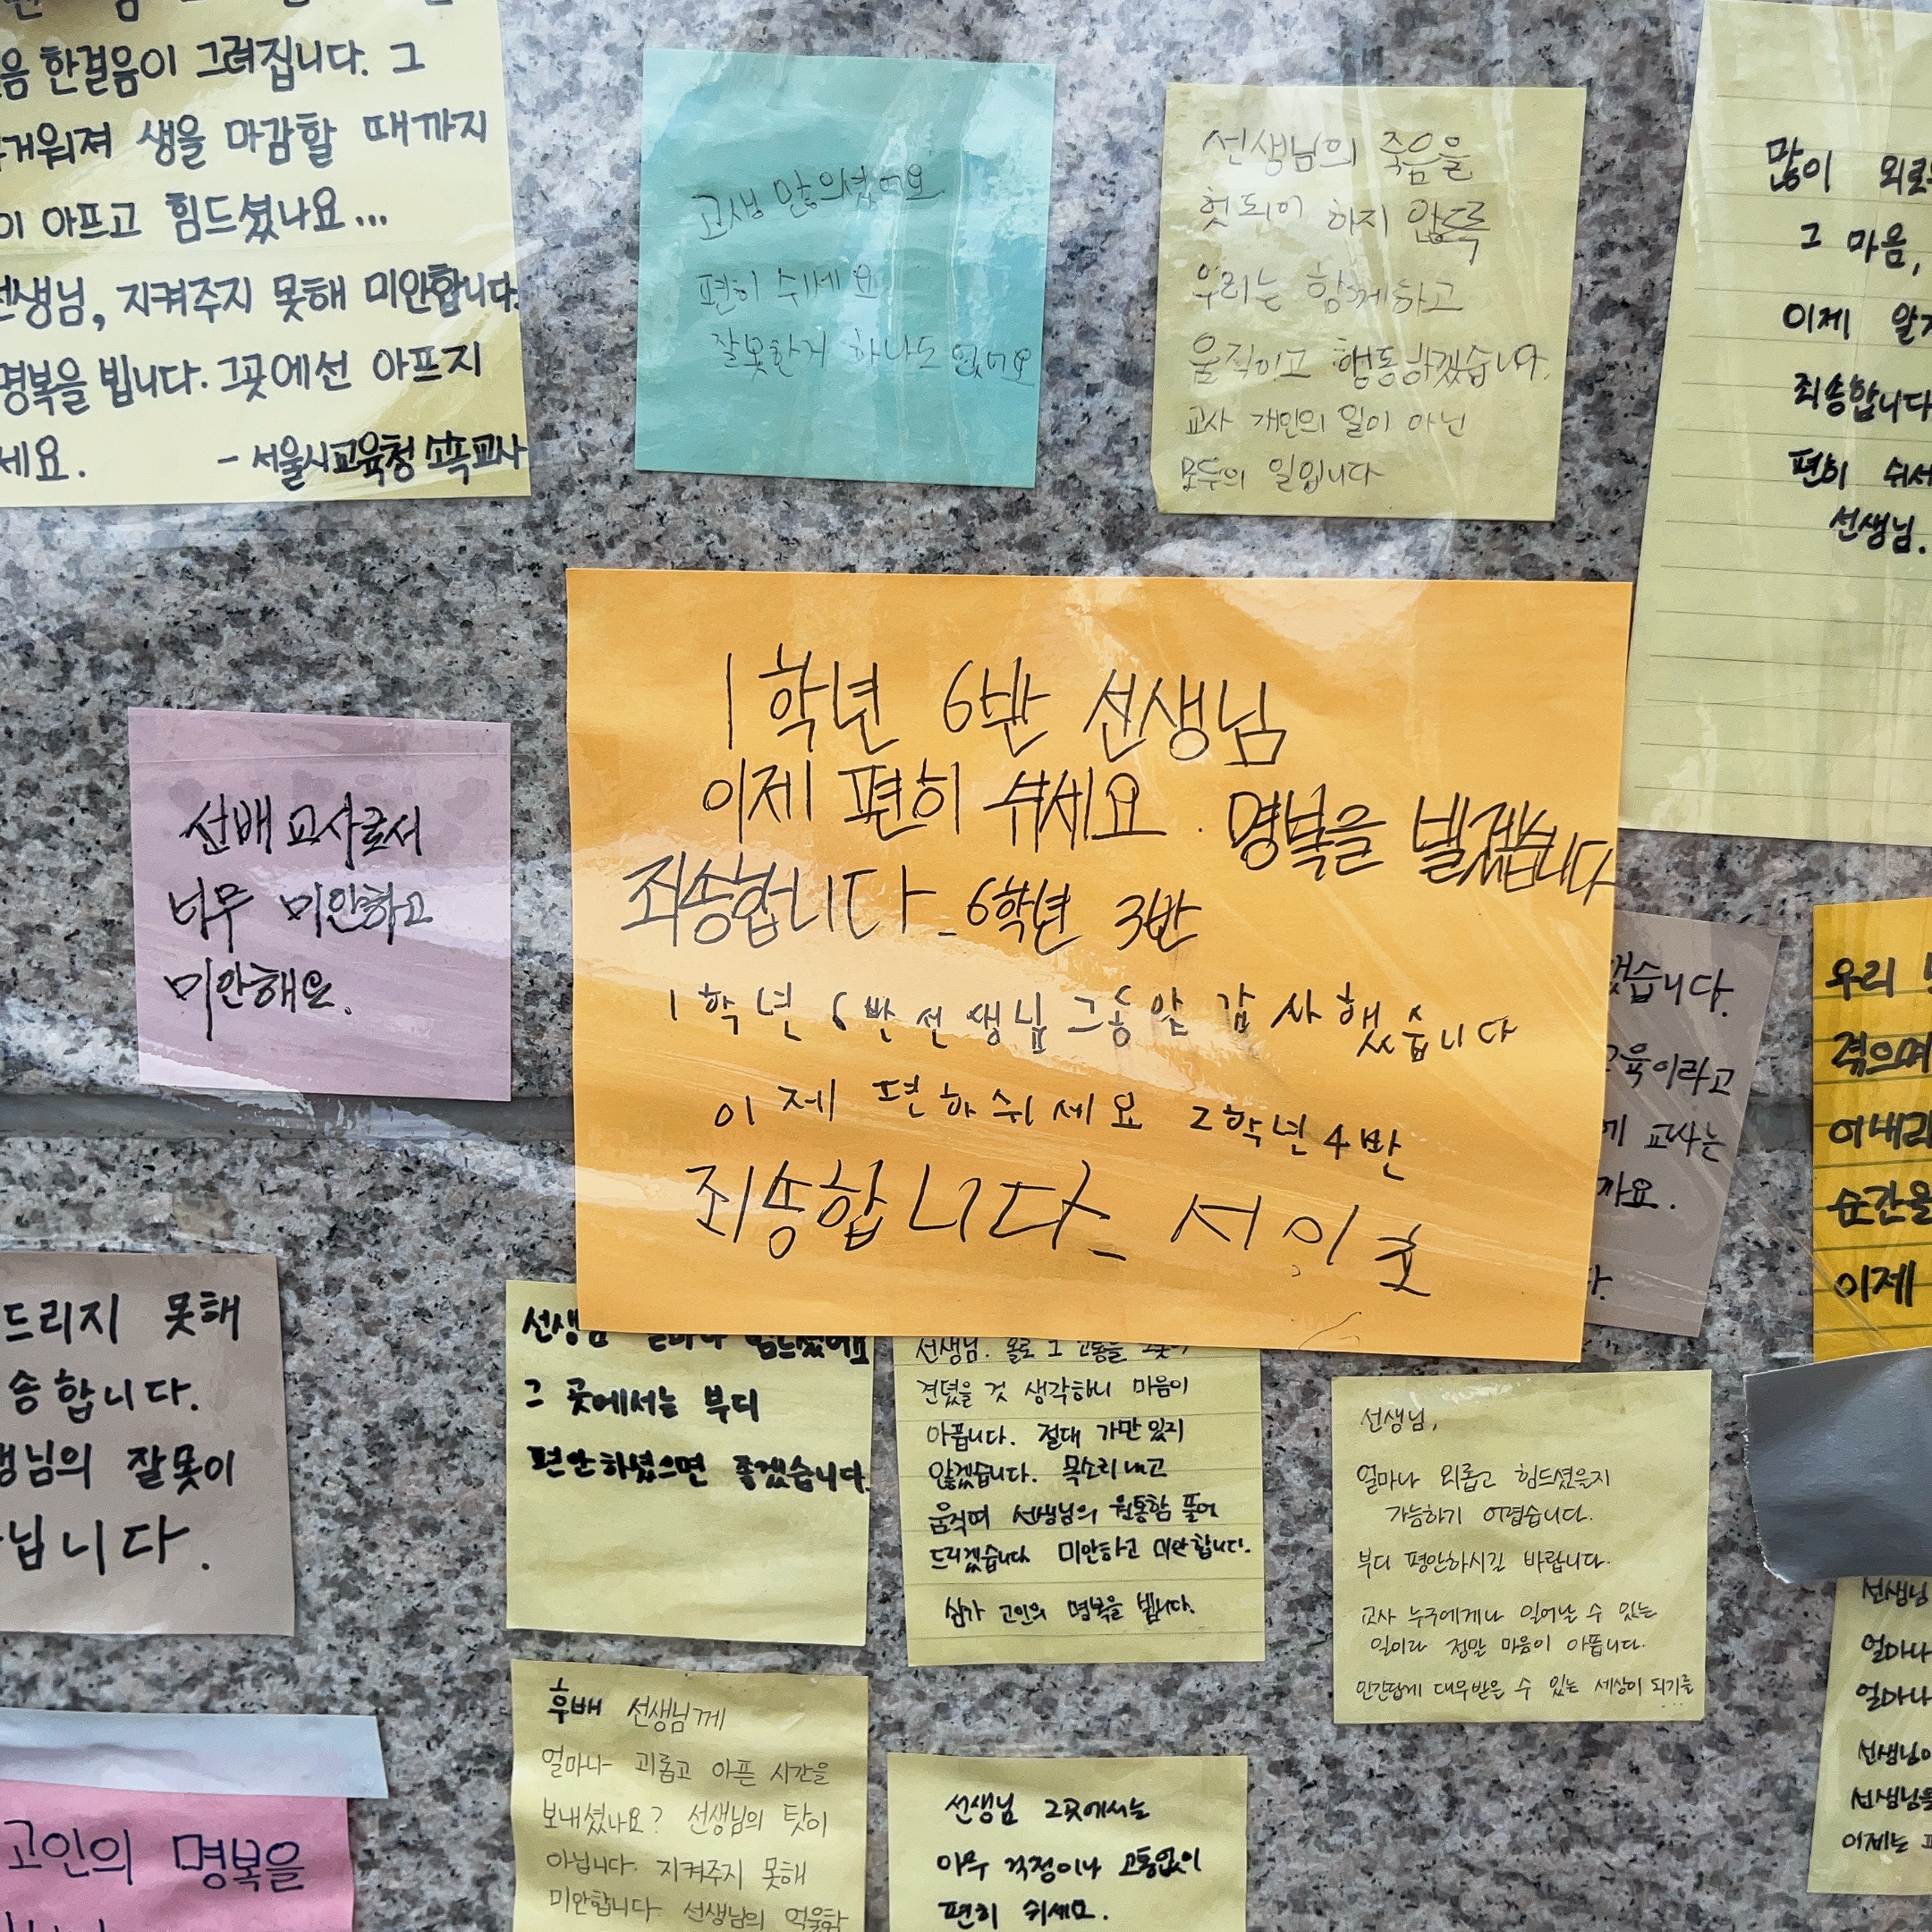 한걸음이 그려집니다. 그
생을 마감할 때까지
이 아프고 힘드셨나요...
선생님, 지켜주지 못해 미안합니다.
명복을 빕니다. 그곳에선 아프지
세요.
- 서울시교육청 소속교사
고생 많으셨어요
편히 쉬세요
잘못한게 하나도 없어요
선생님의 죽음을
헛되이 하지 않도록
우리는 함께하고
움직이고 행동하겠습니다.
교사 개인의 일이 아닌
모두의 일입니다
많이
그 마음,
이제
죄송합니다
편히
선생님.
1학년 6반 선생님
이제 편히 쉬세요. 명복을
죄송합니다_ 6학년 3반
1학년 6반 선생님 그동안 감사했습니다
이제 편하 쉬세요 2학년 4반
죄송합니다_ 서이초
선배 교사로서
너무 미안하고
미안해요.
했습니다.
교육이라고
교사는
까요.
우리
겪으며
순간을
이제
드리지 못해
송합니다.
생님의 잘못이
닙니다.
선생님 얼마나 힘드셨어요
그 곳에서는 부디
편안하셨으면 좋겠습니다.
선생님. 홀로 그 고통을
견뎠을 것 생각하니 마음이
아픕니다. 절대 가만있지
않겠습니다. 목소리내고
움직여 선생님의 원통함 풀어
드리겠습니다 미안하고 미안합니다.
삼가 고인의 명복을 빕니다.
선생님,
얼마나 외롭고 힘드셨을지
가늠하기 어렵습니다.
부디 평안하시길 바랍니다.
교사 누구에게나 일어날 수 있는
일이라 정말 마음이 아픕니다.
인간답게 대우받을 수 있는 세상이 되기를...
선생님
얼마나
얼마나
선생님이
선생님을
이제는
후배 선생님께
얼마나 괴롭고 아픈 시간을
보내셨나요? 선생님의 탓이
아닙니다. 지켜주지 못해
미안합니다. 선생님의 억울함
선생님 그곳에서는
아무 걱정이나 고통없이
편히 쉬세요.
고인의 명복을